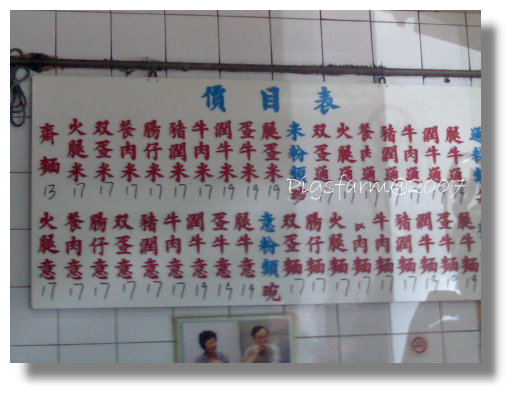 價目表
齋麵 13
火腿米 17
双蛋米 17
餐肉米 17
腸仔米 17
豬潤米 17
牛肉米 17
潤牛米 19
蛋牛米 19
腿蛋米 19
米粉類
双蛋通
火腿通
餐肉通
豬潤通
牛肉通
潤牛通
腿牛通
通粉類
火腿意 17
餐肉意 17
腸仔意 17
双蛋意 17
豬潤意 17
牛肉意 17
潤牛意 19
蛋牛意 19
腿牛意 19
意粉類碗
双蛋麵 17
腸仔麵 17
火腿麵 17
肉麵 17
豬潤麵 17
牛肉麵 17
潤牛麵 19
蛋牛麵 19
腿牛麵 19
Pigsfarm@2007